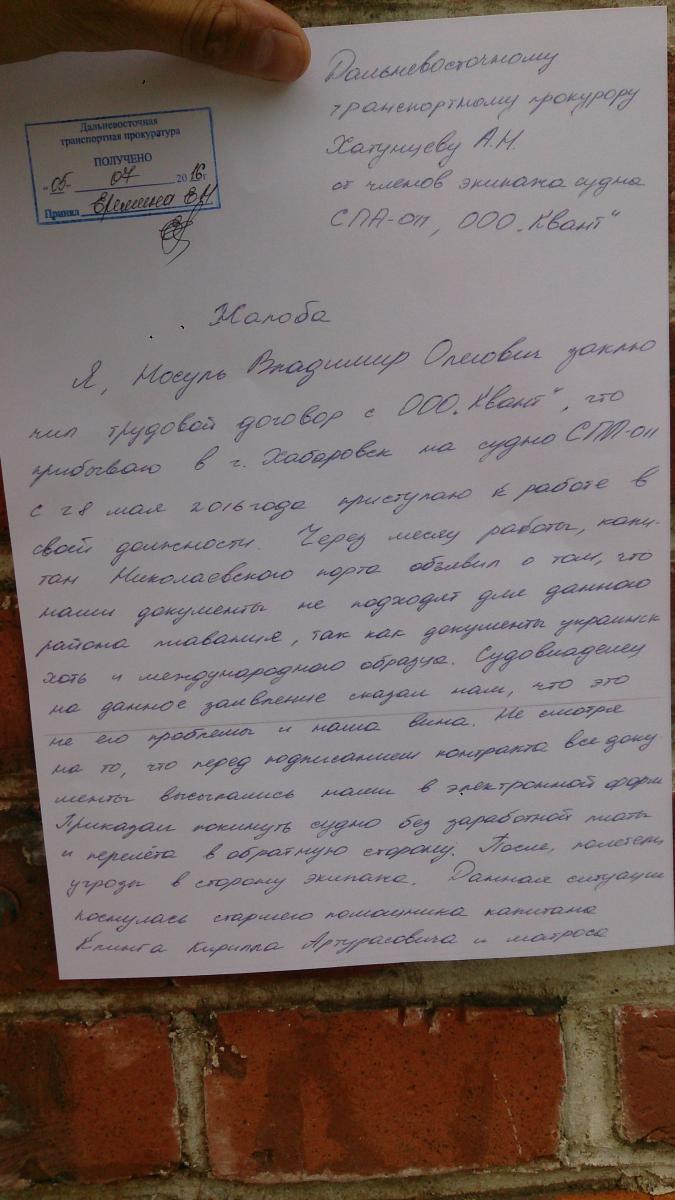 Дальневосточная
транспортная прокуратура
ПОЛУЧЕНО
"05" 07 2016г
Принял Еремина Е.Н
Дальневосточному
транспортному прокурору
Хатунцеву А.Н.
от членов экипажа судна
СПА-011, ООО "Квант"
Жалоба
Я, Мосуль Владимир Олегович заклю
чил трудовой договор с ООО "Квант", что
прибываю в г. Хабаровск на судно СПА-011
с 28 мая 2016 года приступаю к работе в
своей должности. Через месяц работы, капи-
тан Николаевского порта объявил о том, что
наши документы не подходят для данного
района плавания, так как документы украинск
хоть и международного образца. Судовладелец
на данное заявление сказал нам, что это
не его проблемы и наша вина. Не смотря
на то, что перед подписанием контракта все доку
менты высылались нами в электронной форм
Приказал покинуть судно без заработной платы
и перелёта в обратную сторону. После, полетели
угрозы в сторону экипажа. Данная ситуация
коснулась старшего помощника капитана
Клинга Кирилла Артурасовича и матроса